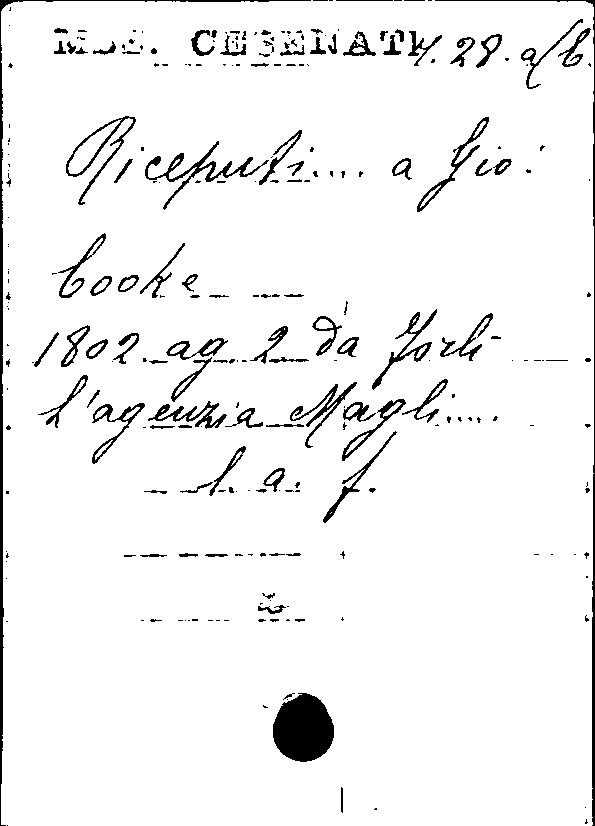 MSS. CESENATI 4. 28. a/b.
Riceputi.... a Gio:
Cooke
1802. ag. 2. da Forlì
L'agenzia Magli....
l. a. f.